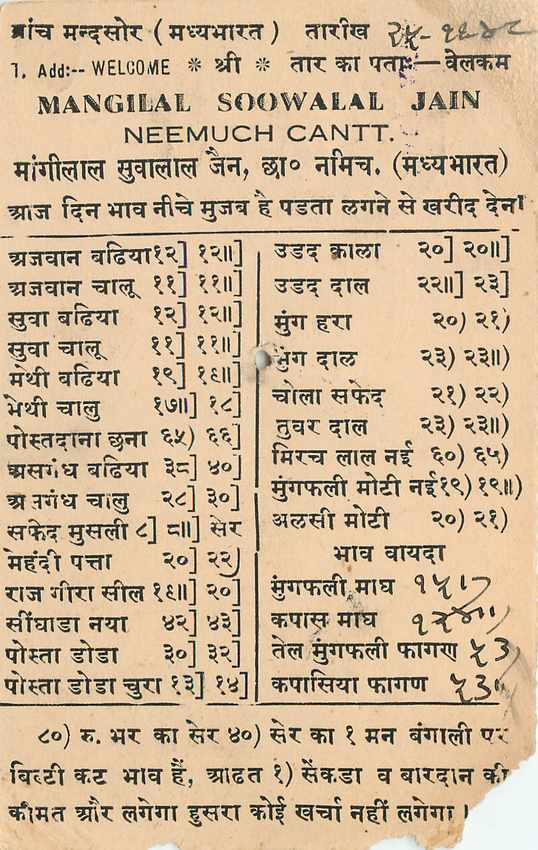 ब्रांच मन्दसोर ( मध्यभारत ) तारीख
T. Add:-- WELCOME * श्री * तार का पताः—वेलकम
MANGILAL SOOWALAL JAIN
NEEMUCH CANTT.
मांगीलाल सुवालाल जैन, छा० नमिच. (मध्यभारत)
आज दिन भाव नीचे मुजब है पडता लगने से खरीद देना
अजवान बढिया १२] १२॥]
अजवान चालू ११] ११॥]
सुवा बढिया १२] १२॥]
सुवा चालू ११] ११॥]
मेथी बढिया १९] १९॥]
मेथी चालु १७॥] १८]
पोस्तदाना छना ६५) ६६]
असगंध बढिया ३८] ४०]
असगंध चालु २८] ३०]
सफेद मुसली ८] ८॥] सेर
मेहंदी पत्ता २०] २२)
राज गीरा सील १९॥] २०]
सींघाडा नया ४२] ४३]
पोस्ता डोडा ३०] ३२]
पोस्ता डोडा चुरा १३] १४]
उडद काला २०] २०॥]
उडद दाल २२॥] २३]
मुंग हरा २०) २१)
मुंग दाल २३) २३॥)
चोला सफेद २१) २२)
तुवर दाल २३) २३॥)
मिरच लाल नई ६०) ६५)
मुंगफली मोटी नई १९) १९॥)
अलसी मोटी २०) २१)
भाव वायदा
मुंगफली माघ
कपास माघ
तेल मुंगफली फागण ५३)
कपासिया फागण
८०) रु. भर का सेर ४०) सेर का १ मन बंगाली पर
बिल्टी कट भाव हैं, आढत १) सेंकडा व बारदान की
कीमत और लगेगा दुसरा कोई खर्चा नहीं लगेगा।